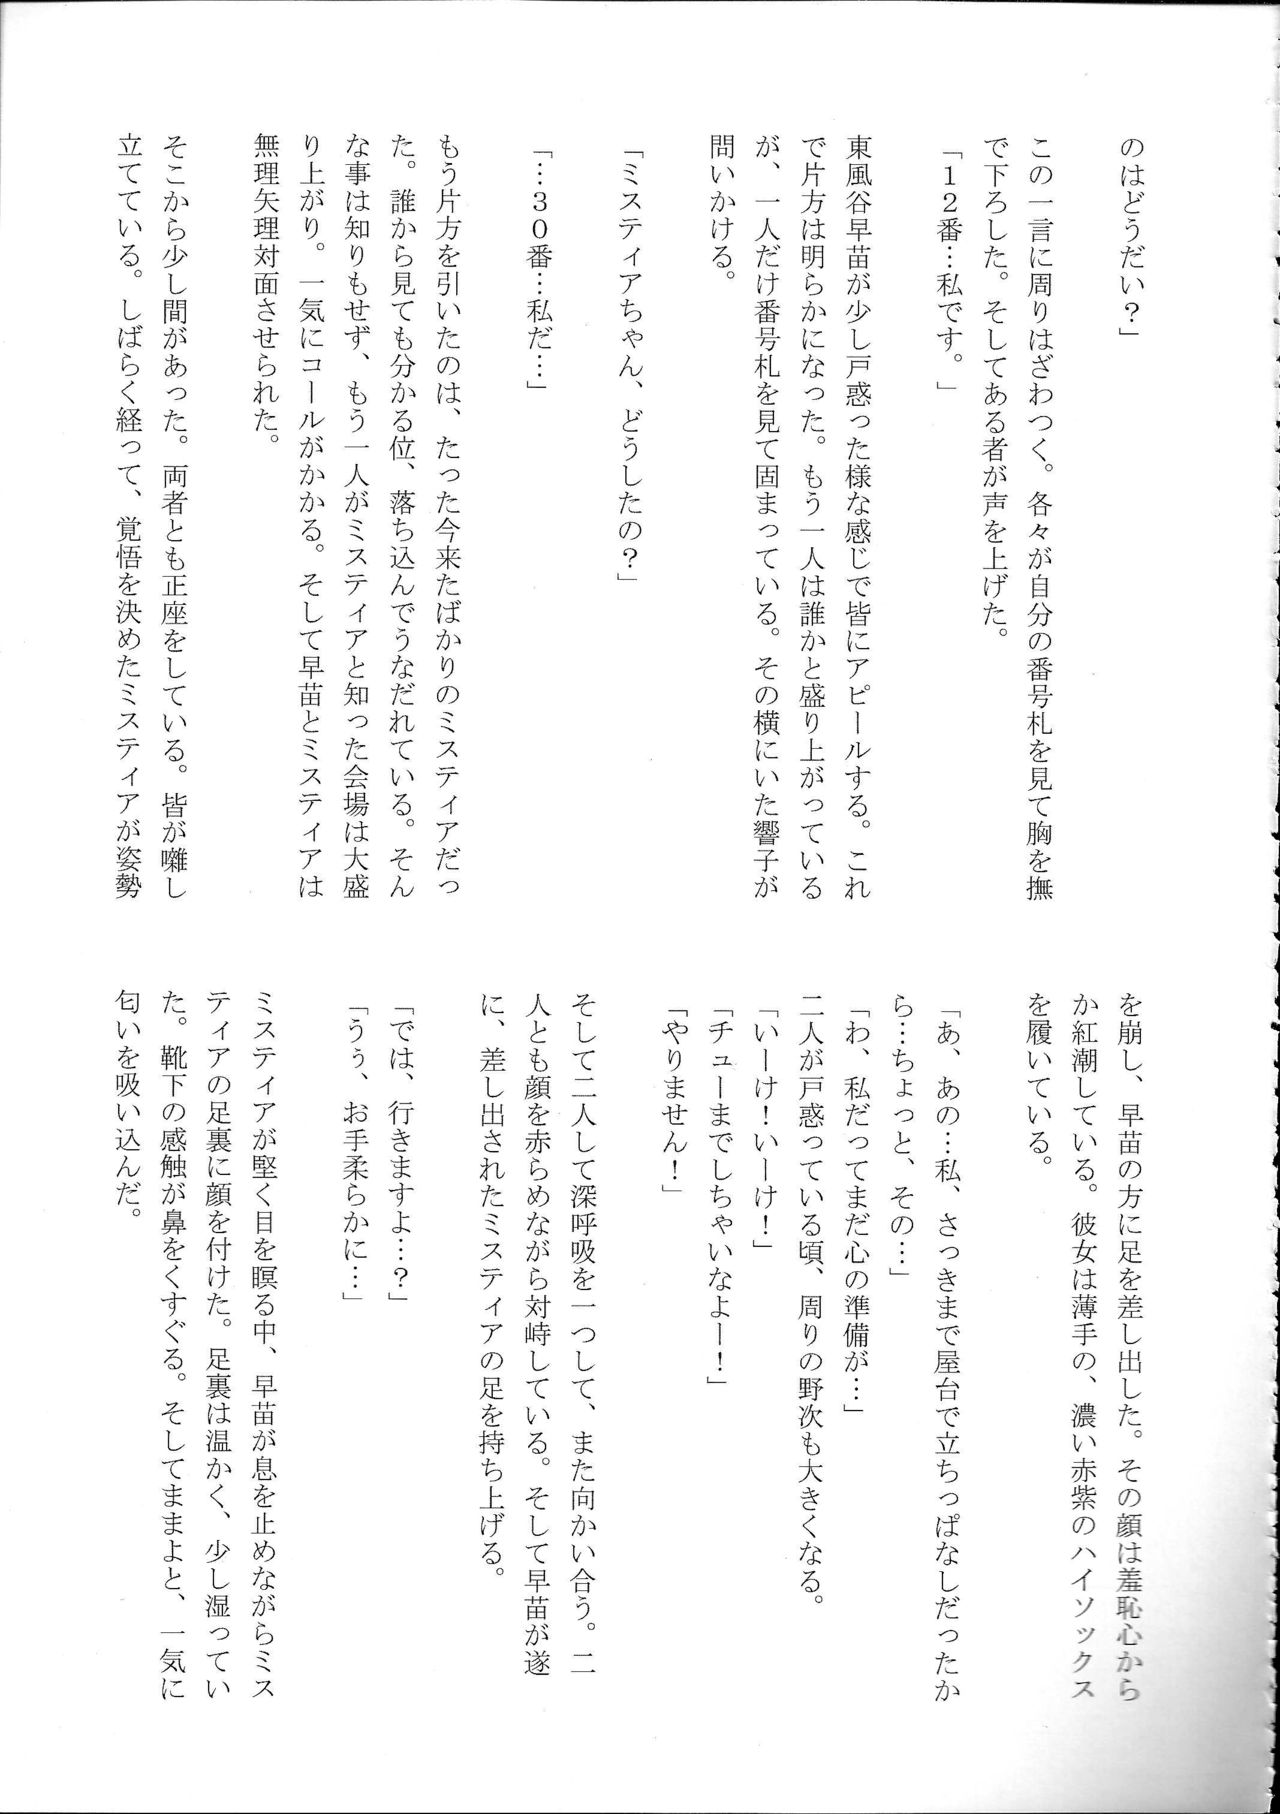 のはどうだい？」
この一言に周りはざわつく。各々が自分の番号札を見て胸を撫
で下ろした。そしてある者が声を上げた。
「１２番…私です。」
東風谷早苗が少し戸惑った様な感じで皆にアピールする。これ
で片方は明らかになった。もう一人は誰かと盛り上がっている
が、一人だけ番号札を見て固まっている。その横にいた響子が
問いかける。
「ミスティアちゃん、どうしたの？」
「…３０番…私だ…」
もう片方を引いたのは、たった今来たばかりのミスティアだっ
た。誰から見ても分かる位、落ち込んでうなだれている。そん
な事は知りもせず、もう一人がミスティアと知った会場は大盛
り上がり。一気にコールがかかる。そして早苗とミスティアは
無理矢理対面させられた。
そこから少し間があった。両者とも正座をしている。皆が囃し
立てている。しばらく経って、覚悟を決めたミスティアが姿勢
を崩し、早苗の方に足を差し出した。その顔は羞恥心から
か紅潮している。彼女は薄手の、濃い赤紫のハイソックス
を履いている。
「あ、あの…私、さっきまで屋台で立ちっぱなしだったか
ら…ちょっと、その…」
「わ、私だってまだ心の準備が…」
二人が戸惑っている頃、周りの野次も大きくなる。
「いーけ！いーけ！」
「チューまでしちゃいなよー！」
「やりません！」
そして二人して深呼吸を一つして、また向かい合う。二
人とも顔を赤らめながら対峙している。そして早苗が遂
に、差し出されたミスティアの足を持ち上げる。
「では、行きますよ…？」
「うぅ、お手柔らかに…」
ミスティアが堅く目を瞑る中、早苗が息を止めながらミス
ティアの足裏に顔を付けた。足裏は温かく、少し湿ってい
た。靴下の感触が鼻をくすぐる。そしてままよと、一気に
匂いを吸い込んだ。